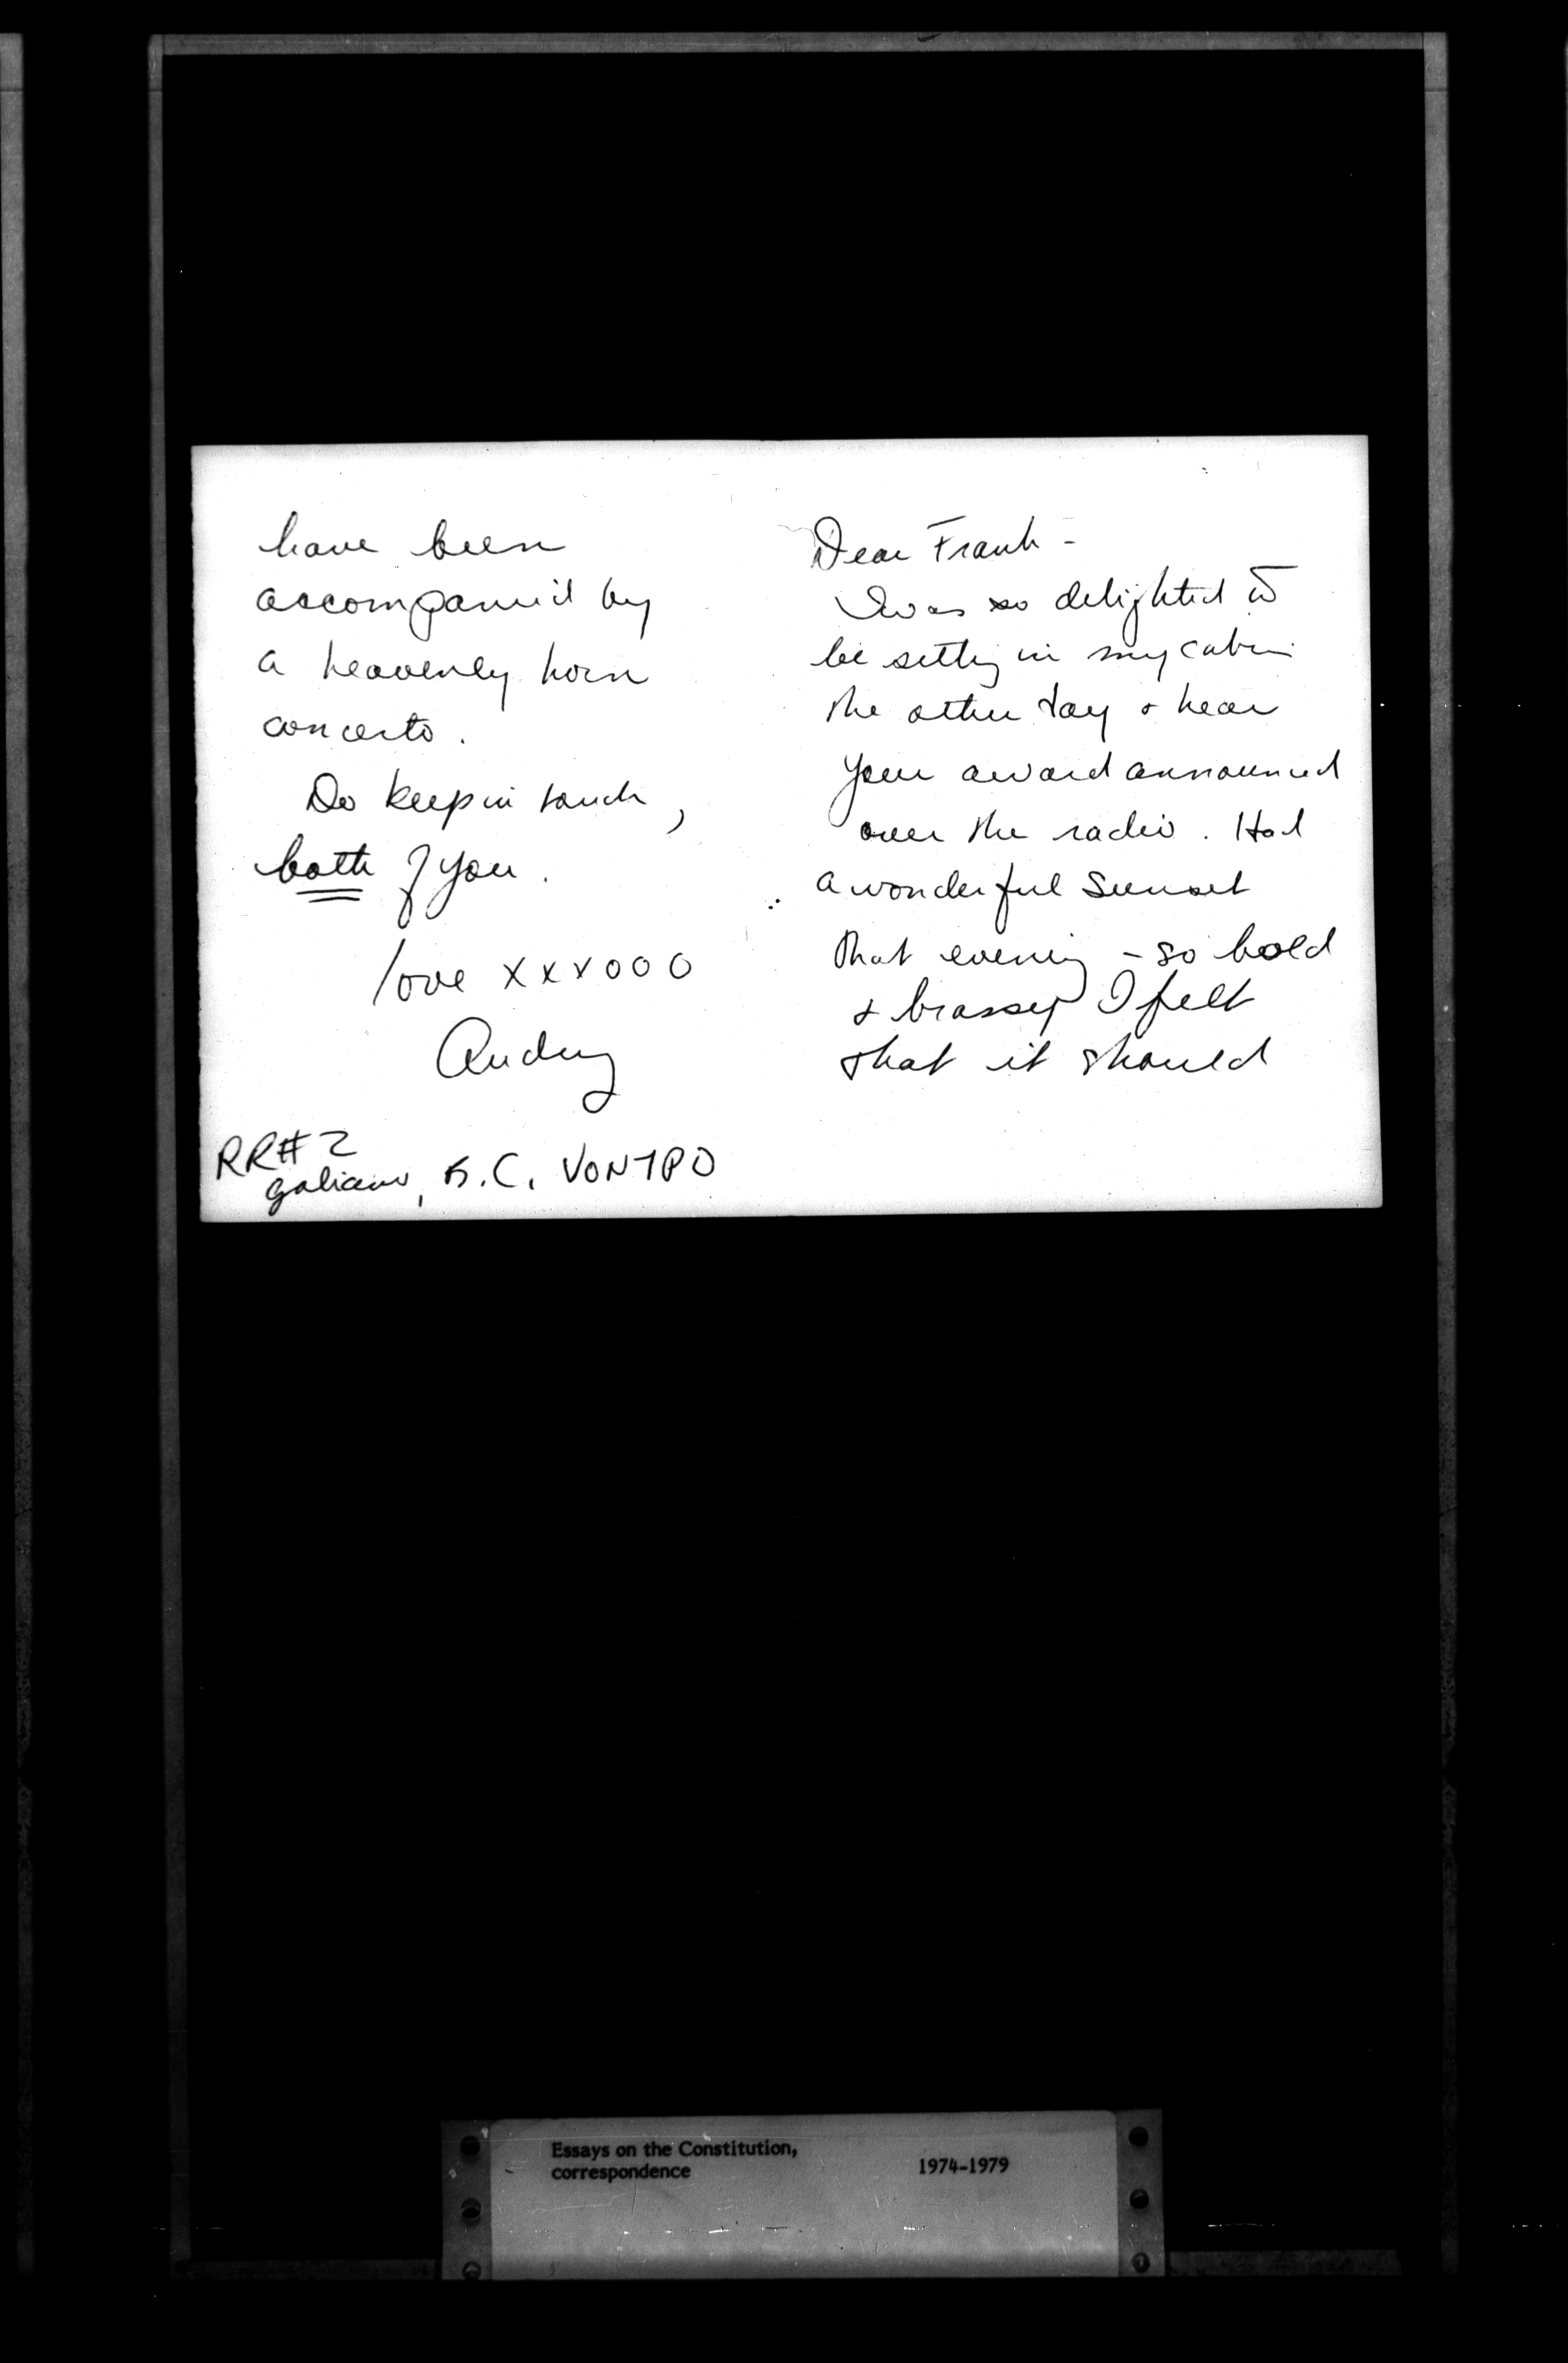 Dear Frank -
I was so delighted to
be sitting in my cabin
the other day & hear
your award announced
over the radio. Had
a wonderful sunset
that evening - so bold
& brassy I felt
that it should
have been
accompanied by
a heavenly horn
concerto.
Do keep in touch,
both of you.
love xxxooo
Audrey
RR# 2
galiano, B.C. V0N1P0
Essays on the Constitution,
correspondence
1974-1979